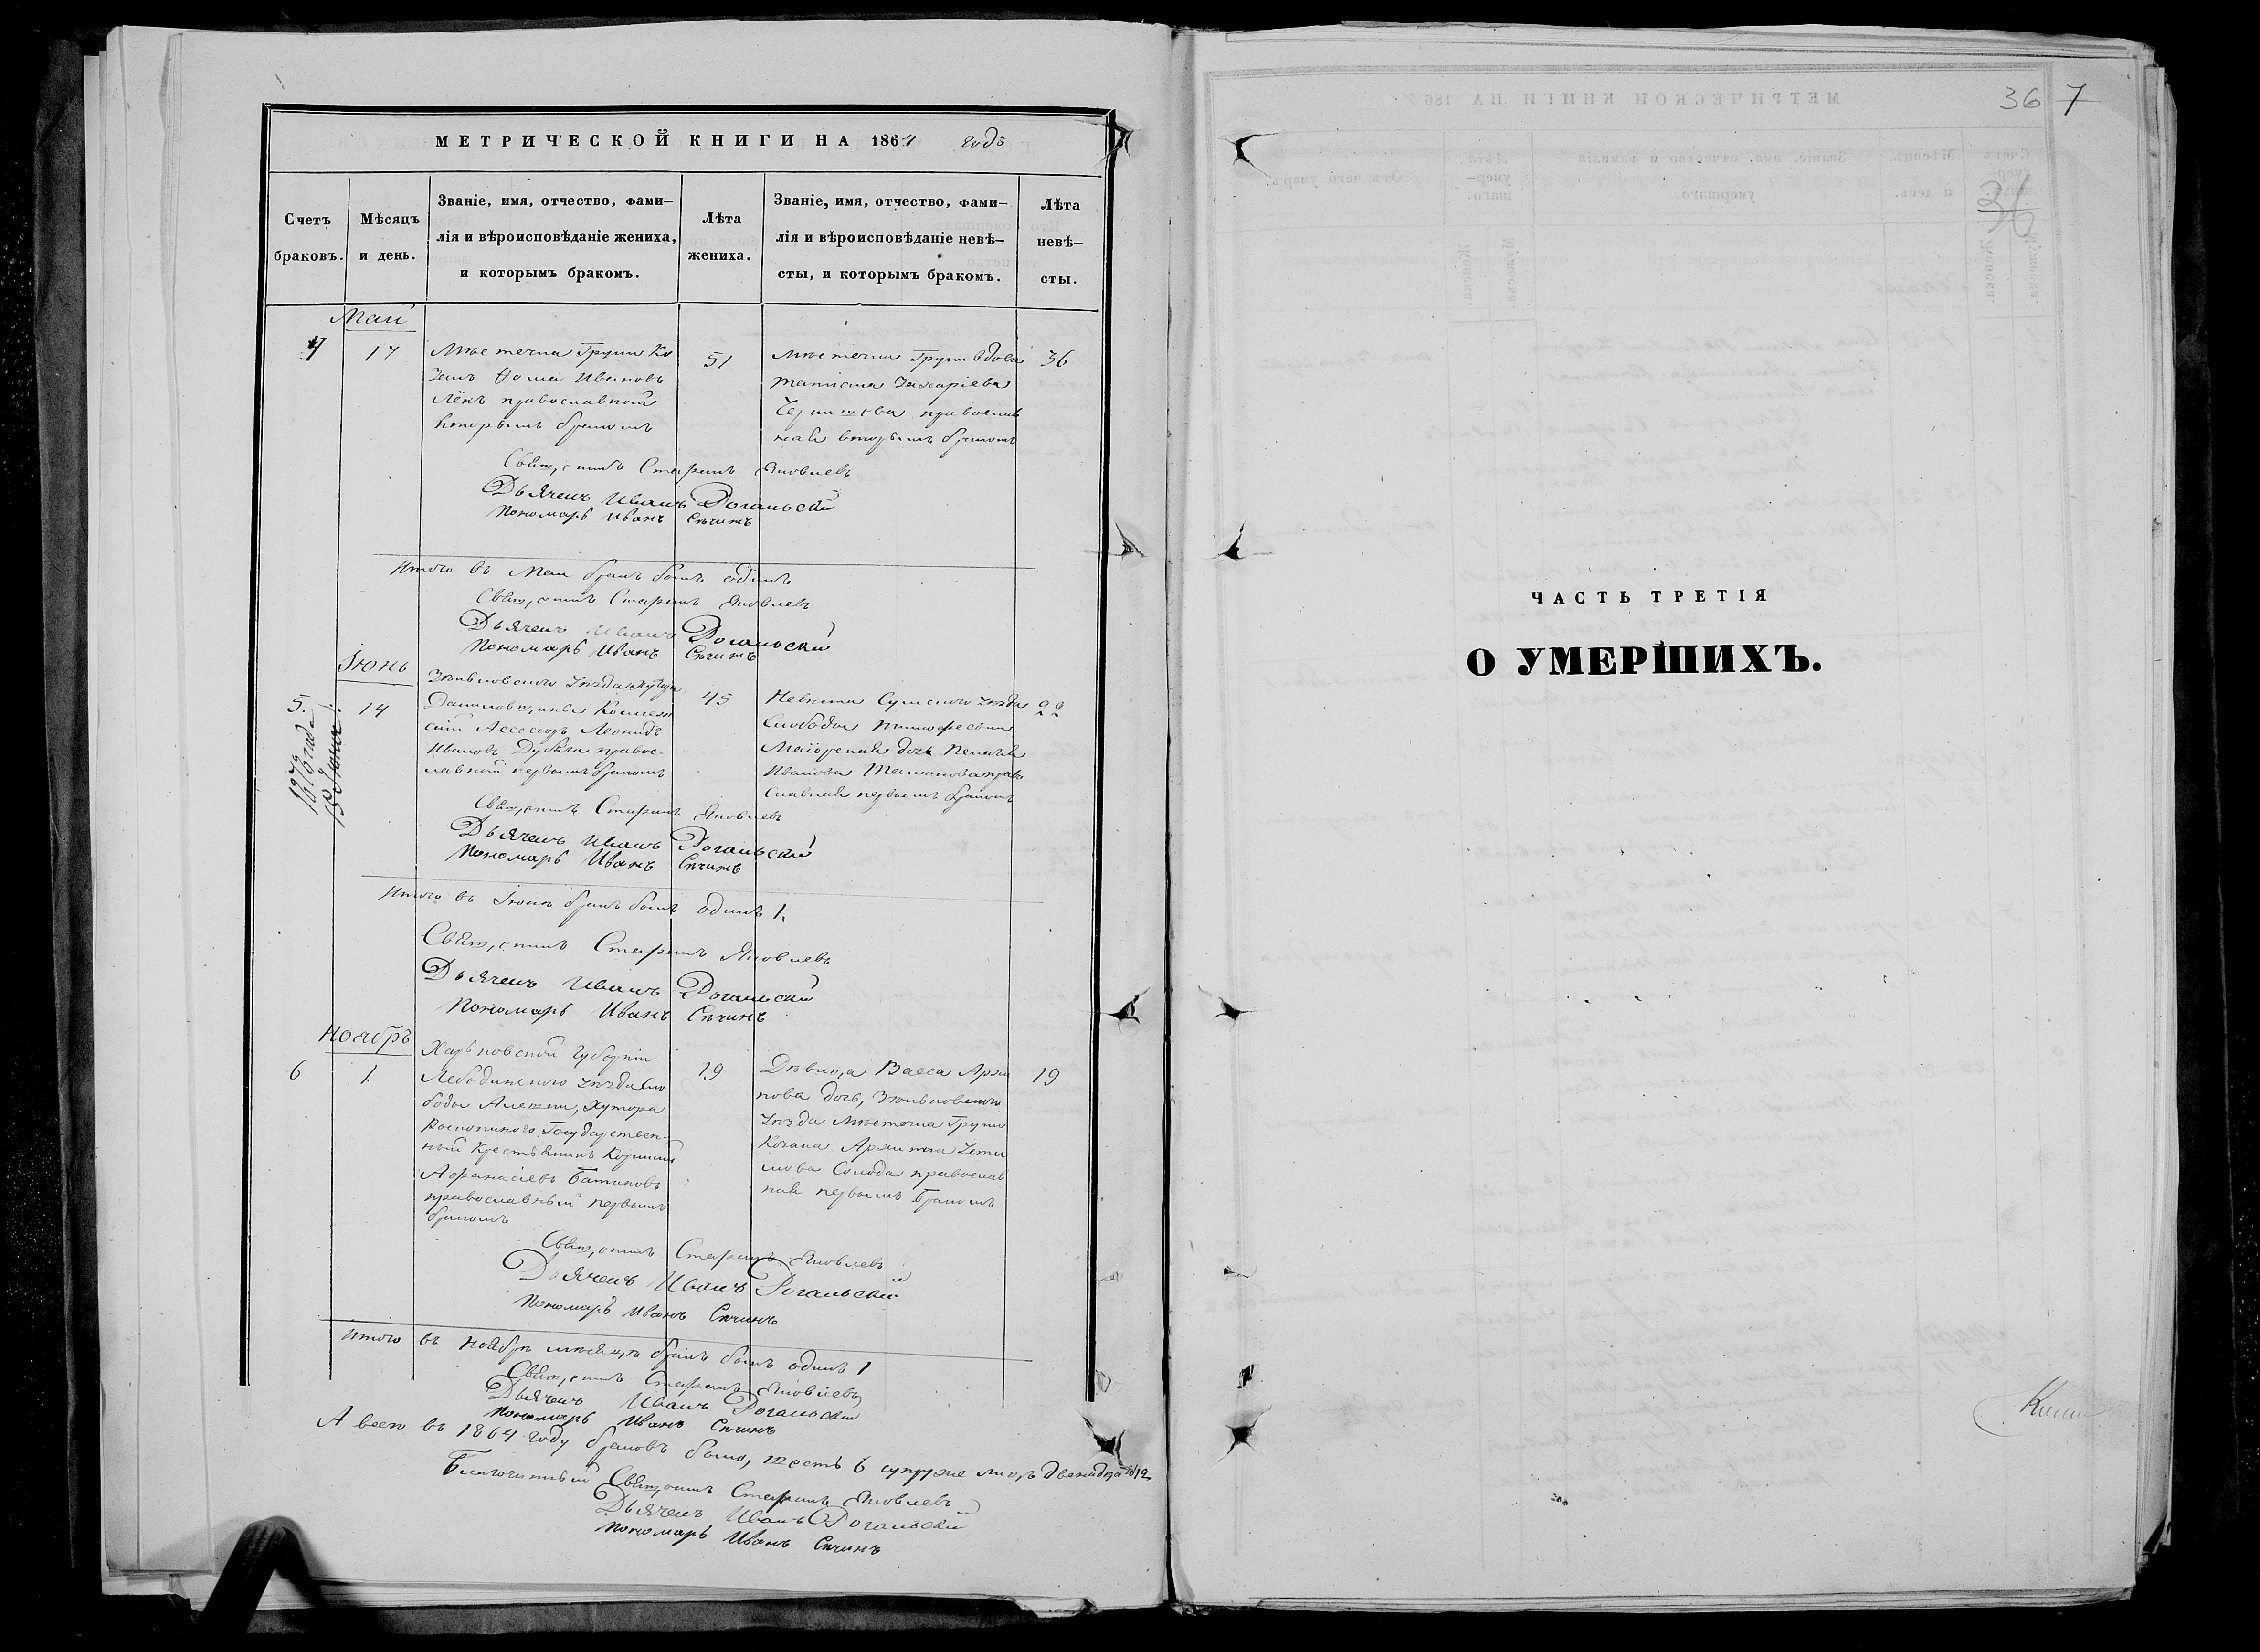 МЕТРИЧЕСКОЙ КНИГИ НА 1864 годъ
Счетъ браковъ.
Мѣсяцъ и день.
Званіе, имя, отчество, фами-
лія и вѣроисповѣданіе жениха,
и которымъ бракомъ.
Лѣта
жениха.
Званіе, имя, отчество, фами-
лія и вѣроисповѣданіе невѣ-
сты, и которымъ бракомъ.
Лѣта
невѣ-
сты.
Маій
4 17
Мѣстечка Груни Ко
закъ Ѳома Ивановъ
православный
вторымъ бракомъ
51
Мѣстечка Груни вдова
Татіана Захаріева
православ
ная вторымъ бракомъ
36
Священникъ Стефанъ Яковлевъ
Дьячекъ Иванъ Рогальскій
Пономарь Иванъ Сѣчинъ
Итого въ Маи бракъ былъ одинъ
Священникъ Стефанъ Яковлевъ
Дьячекъ Иванъ Рогальскій
Пономарь Иванъ Сѣчинъ
Іюнь
5. 14
Зѣньковскаго уѣзда хутора
Коллеж
скій Ассесоръ Леонидъ
Ивановъ правос-
лавный первымъ бракомъ
45
Невѣста Сумскаго уѣзда
Слободы
Маіорская дочь Пелагія
Иванова право
славная первымъ бракомъ
22
Священникъ Стефанъ Яковлевъ
Дьячекъ Иванъ Рогальскій
Пономарь Иванъ Сѣчинъ
Итого въ Іюнѣ бракъ былъ одинъ 1.
Священникъ Стефанъ Яковлевъ
Дьячекъ Иванъ Рогальскій
Пономарь Иванъ Сѣчинъ
Ноябрь
6 1.
Харьковской Губерніи
Лебединскаго уѣзда Сло
боды Алешни, хутора
Государствен-
ный Крестьянинъ Корнилій
Афанасіевъ Батиковъ
православный первымъ
бракомъ
19
Дѣвица Васса Архи
пова дочь, Зѣньковскаго
уѣзда Мѣстечка Груни
Козака Архипа
Солода православ
ная первымъ бракомъ
19
Священникъ Стефанъ Яковлевъ
Дьячекъ Иванъ Рогальскій
Пономарь Иванъ Сѣчинъ
Итого въ Ноябрѣ мѣсяцѣ бракъ былъ одинъ 1
Священникъ Стефанъ Яковлевъ
Дьячекъ Иванъ Рогальскій
Пономарь Иванъ Сѣчинъ
А всего въ 1864 году браковъ было, шесть 6 супруже лицъ двенадцать 12
Благочинный Священникъ Стефанъ Яковлевъ
Дьячекъ Иванъ Рогальскій
Пономарь Иванъ Сѣчинъ
36 7
36
ЧАСТЬ ТРЕТІЯ
О УМЕРШИХЪ.